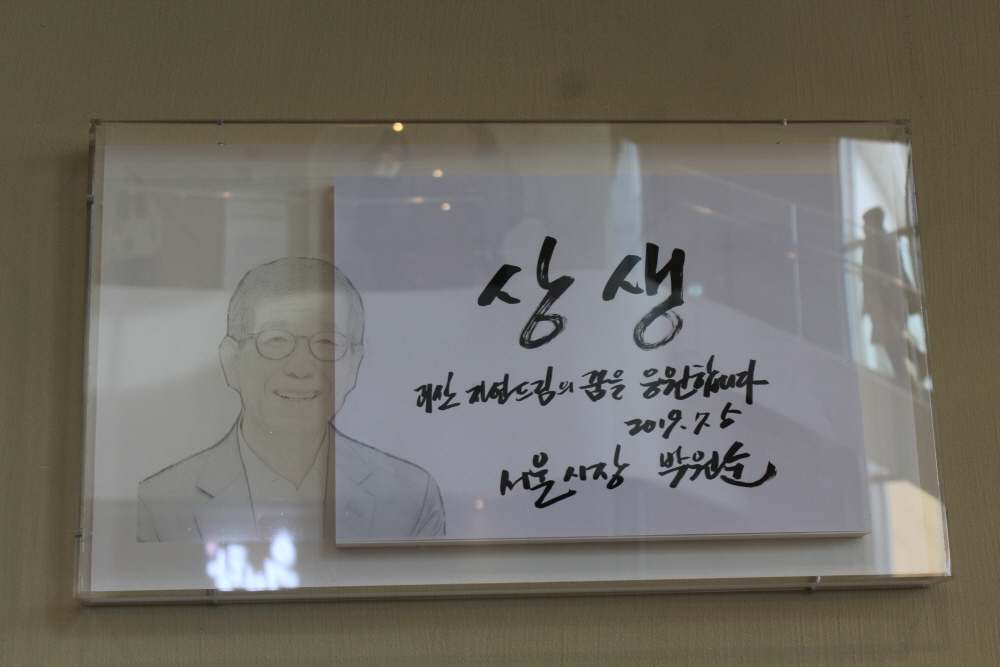 상생
괴산 자연드림의 꿈을 응원합니다
2019. 7. 5
서울시장 박원순